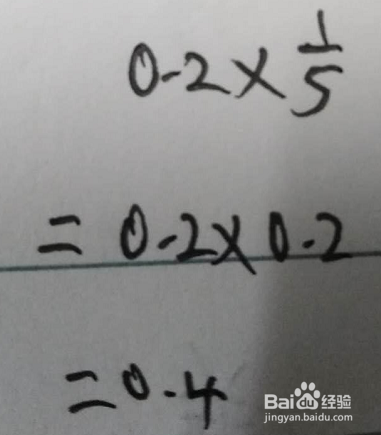 0.2×1/5
=0.2×0.2
=0.4
Bai du 经验
jingyan.baidu.com